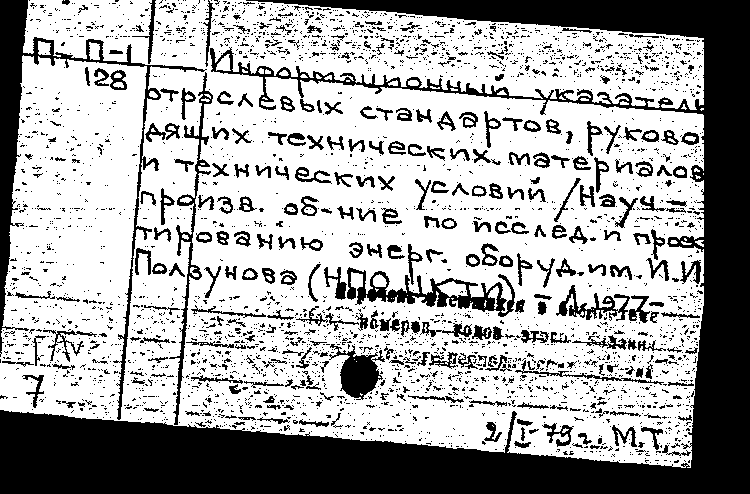 П. П-1
128
Информационный указатель
отраслевых стандартов, руково-
дящих технических материалов
и технических условий /Науч.-
произв. об-ние по исслед. и проек-
тированию энерг. оборуд. им. И.И.
Ползунова (НПО ЦКТИ) – Л. 1977–
Перечень имеющихся в библиотеке
номеров, годов этого издания
7
2/I-79 г. М.Т.